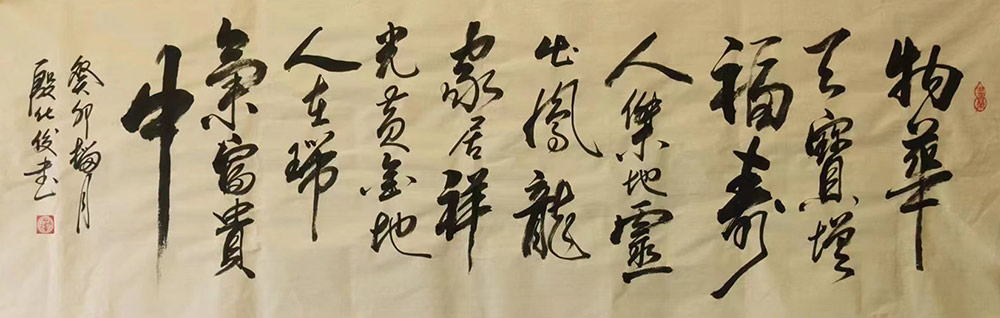 物華
天寶增
福壽
人傑地靈
出鳳龍
家居祥
光黃金地
人在瑞
氣富貴
中
癸卯梅月
殷化俊書